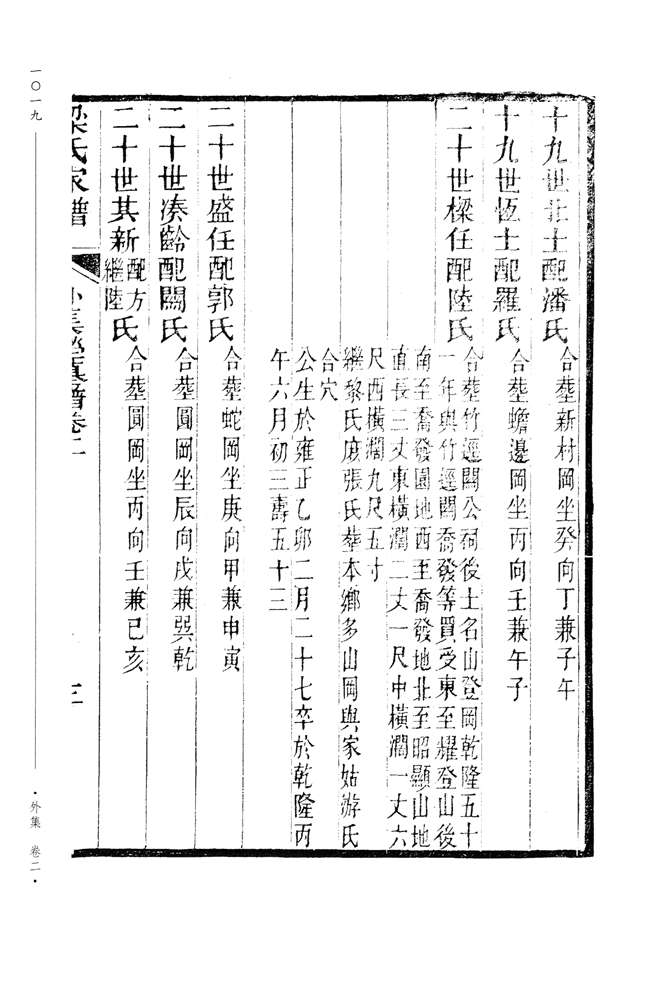 十九世壯士配潘氏合葬新村岡坐癸向丁兼子午
十九世恆士配羅氏合葬蟾邊岡坐丙向壬兼午子
二十世樑任配陸氏合葬竹逕關公祠後土名山登岡乾隆五十
一年與竹逕關喬發等買受東至耀登山後
南至喬發園地西至喬發地北至昭顯山地
直長三丈東橫濶二丈一尺中橫濶一丈六
尺西橫濶九尺五寸
繼黎氏庶張氏葬本鄉多山岡與家姑游氏
合穴
公生於雍正乙卯二月二十七卒於乾隆丙
午六月初三壽五十三
二十世盛任配郭氏合葬蛇岡坐庚向甲兼申寅
二十世湊齡配關氏合葬圓岡坐辰向戌兼巽乾
二十世其新配方氏繼陸氏合葬圓岡坐丙向壬兼巳亥
梁氏家譜
外集 譜卷二
三
一〇一九
·外集 卷二·